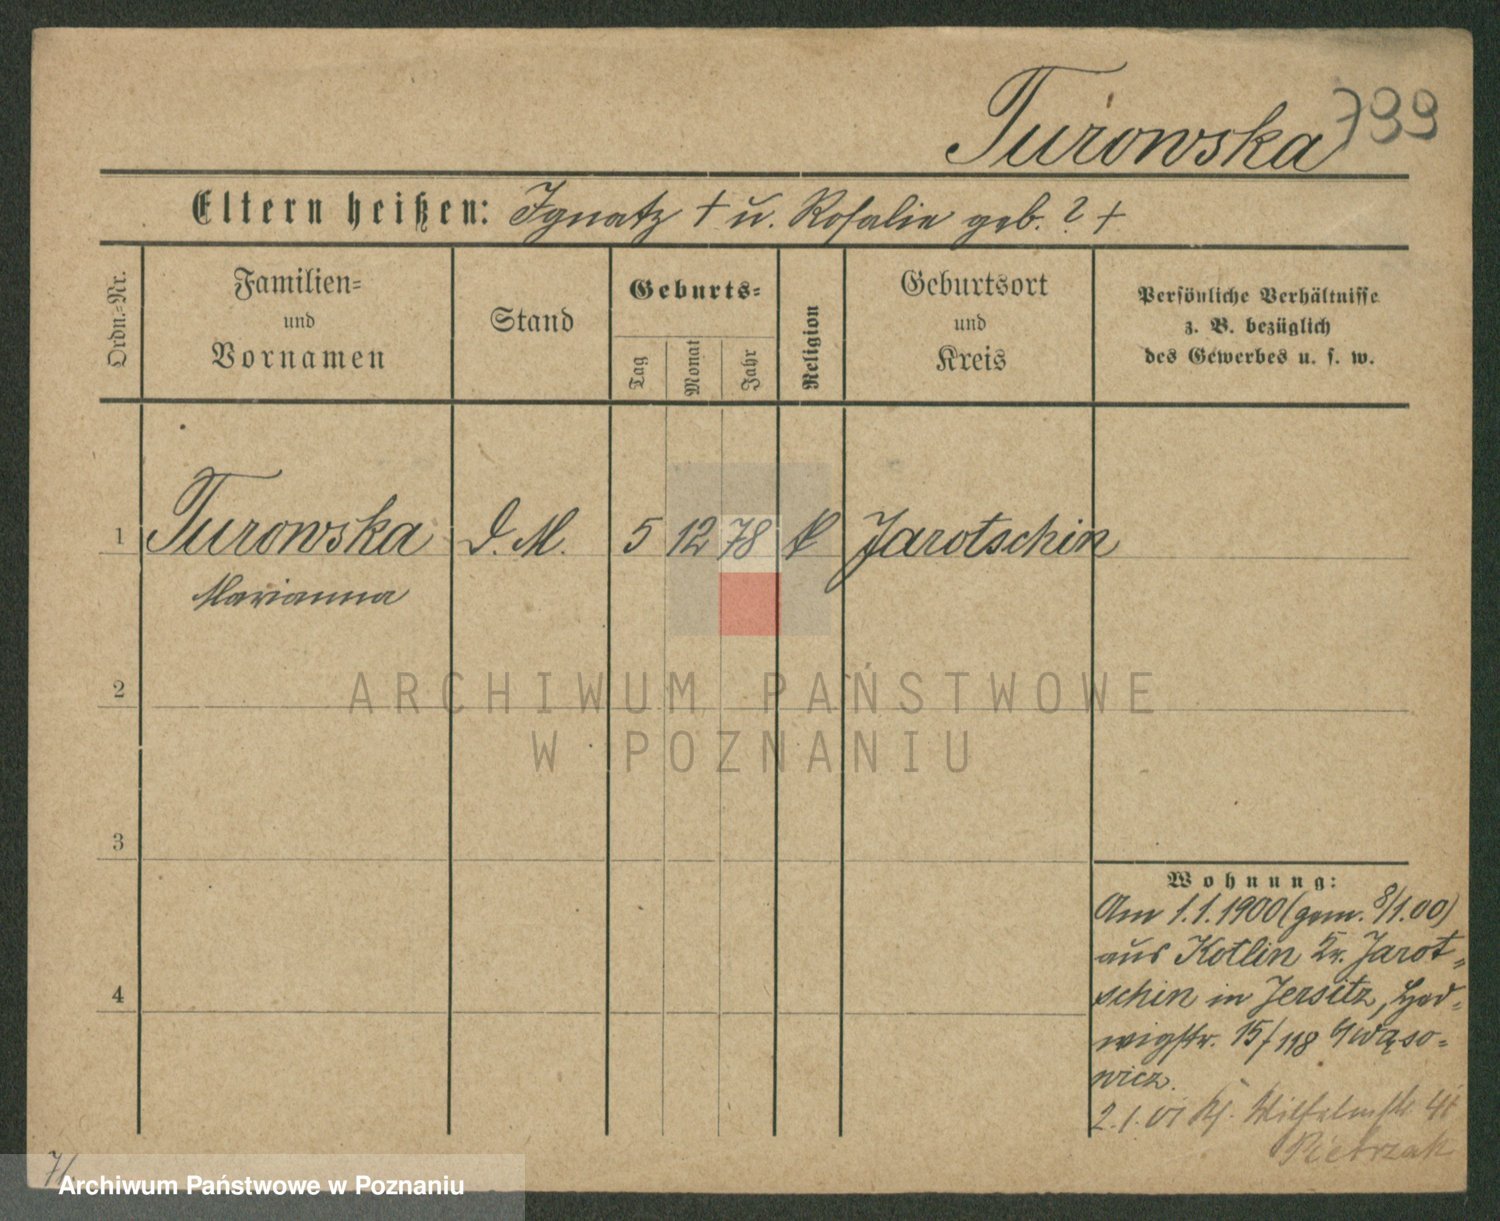 Turowska 799
Eltern heißen: Ignatz † u. Rosalie geb. ? †
Ordn.-Nr.
Familien-
und
Vornamen
Stand
Geburts-
Tag
Monat
Jahr
Religion
Geburtsort
und
Kreis
Persönliche Verhältnisse
z. B. bezüglich
des Gewerbes u. s. w.
1 Turowska D. M. 5 12 78 k Jarotschin
Marianna
2
ARCHIWUM PAŃSTWOWE
W POZNANIU
3
Wohnung:
Am 1.1.1900 (gem. 8/1.00)
aus Kotlin Kr. Jarot-
schin in Jersitz, Hed-
4
wigstr. 15/118
wicz.
2.1.01 Wilhelmstr.
Pietrzak
7/
Archiwum Państwowe w Poznaniu